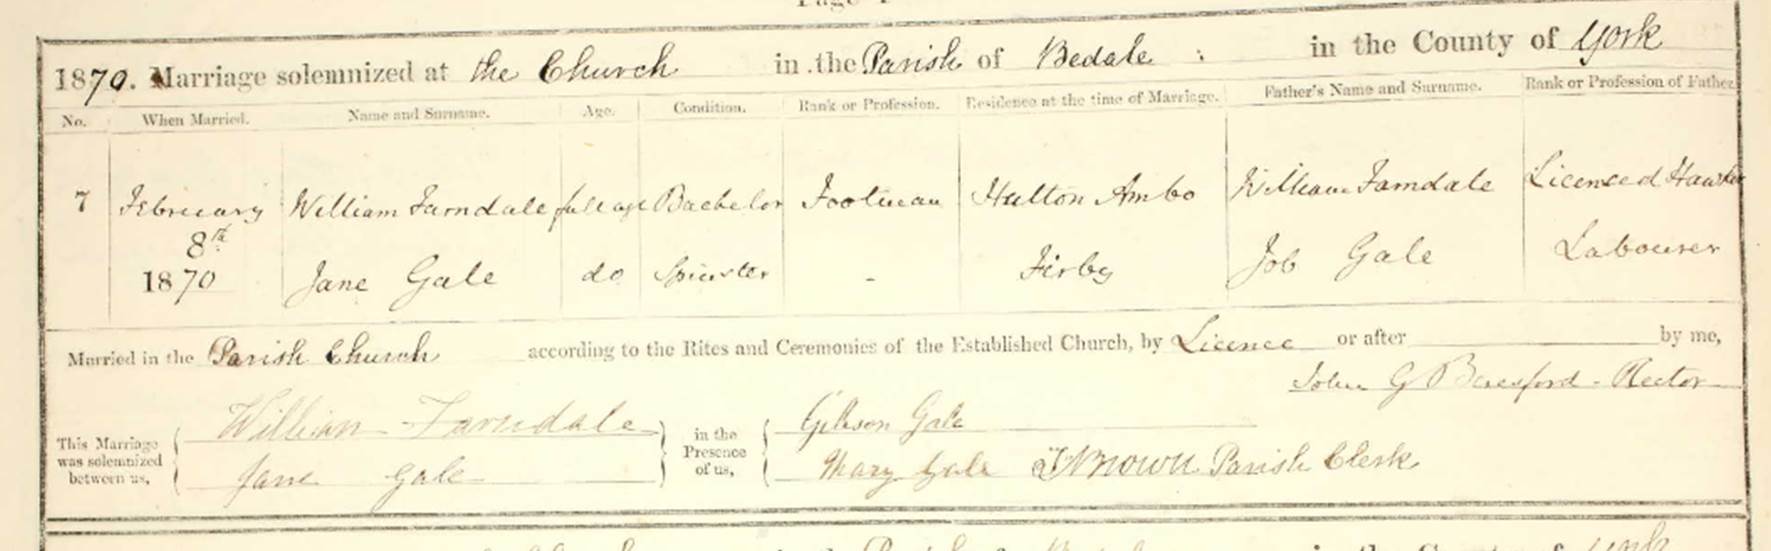 1870. Marriage solemnized at the Church in the Parish of Bedale : in the County of York
No. When Married. Name and Surname. Age. Condition. Rank or Profession. Residence at the time of Marriage. Father's Name and Surname. Rank or Profession of Father.
7 February William Farndale full age Bachelor Footman Hutton Ambo William Farndale Licenced Hawker
8th
1870 Jane Gale do Spinster - Firby Job Gale Labourer
Married in the Parish Church according to the Rites and Ceremonies of the Established Church, by Licence or after by me,
John G Beresford - Rector
This Marriage was solemnized between us,
William Farndale
Jane Gale
in the Presence of us,
Gibson Gale
Mary Gale J Brown Parish Clerk